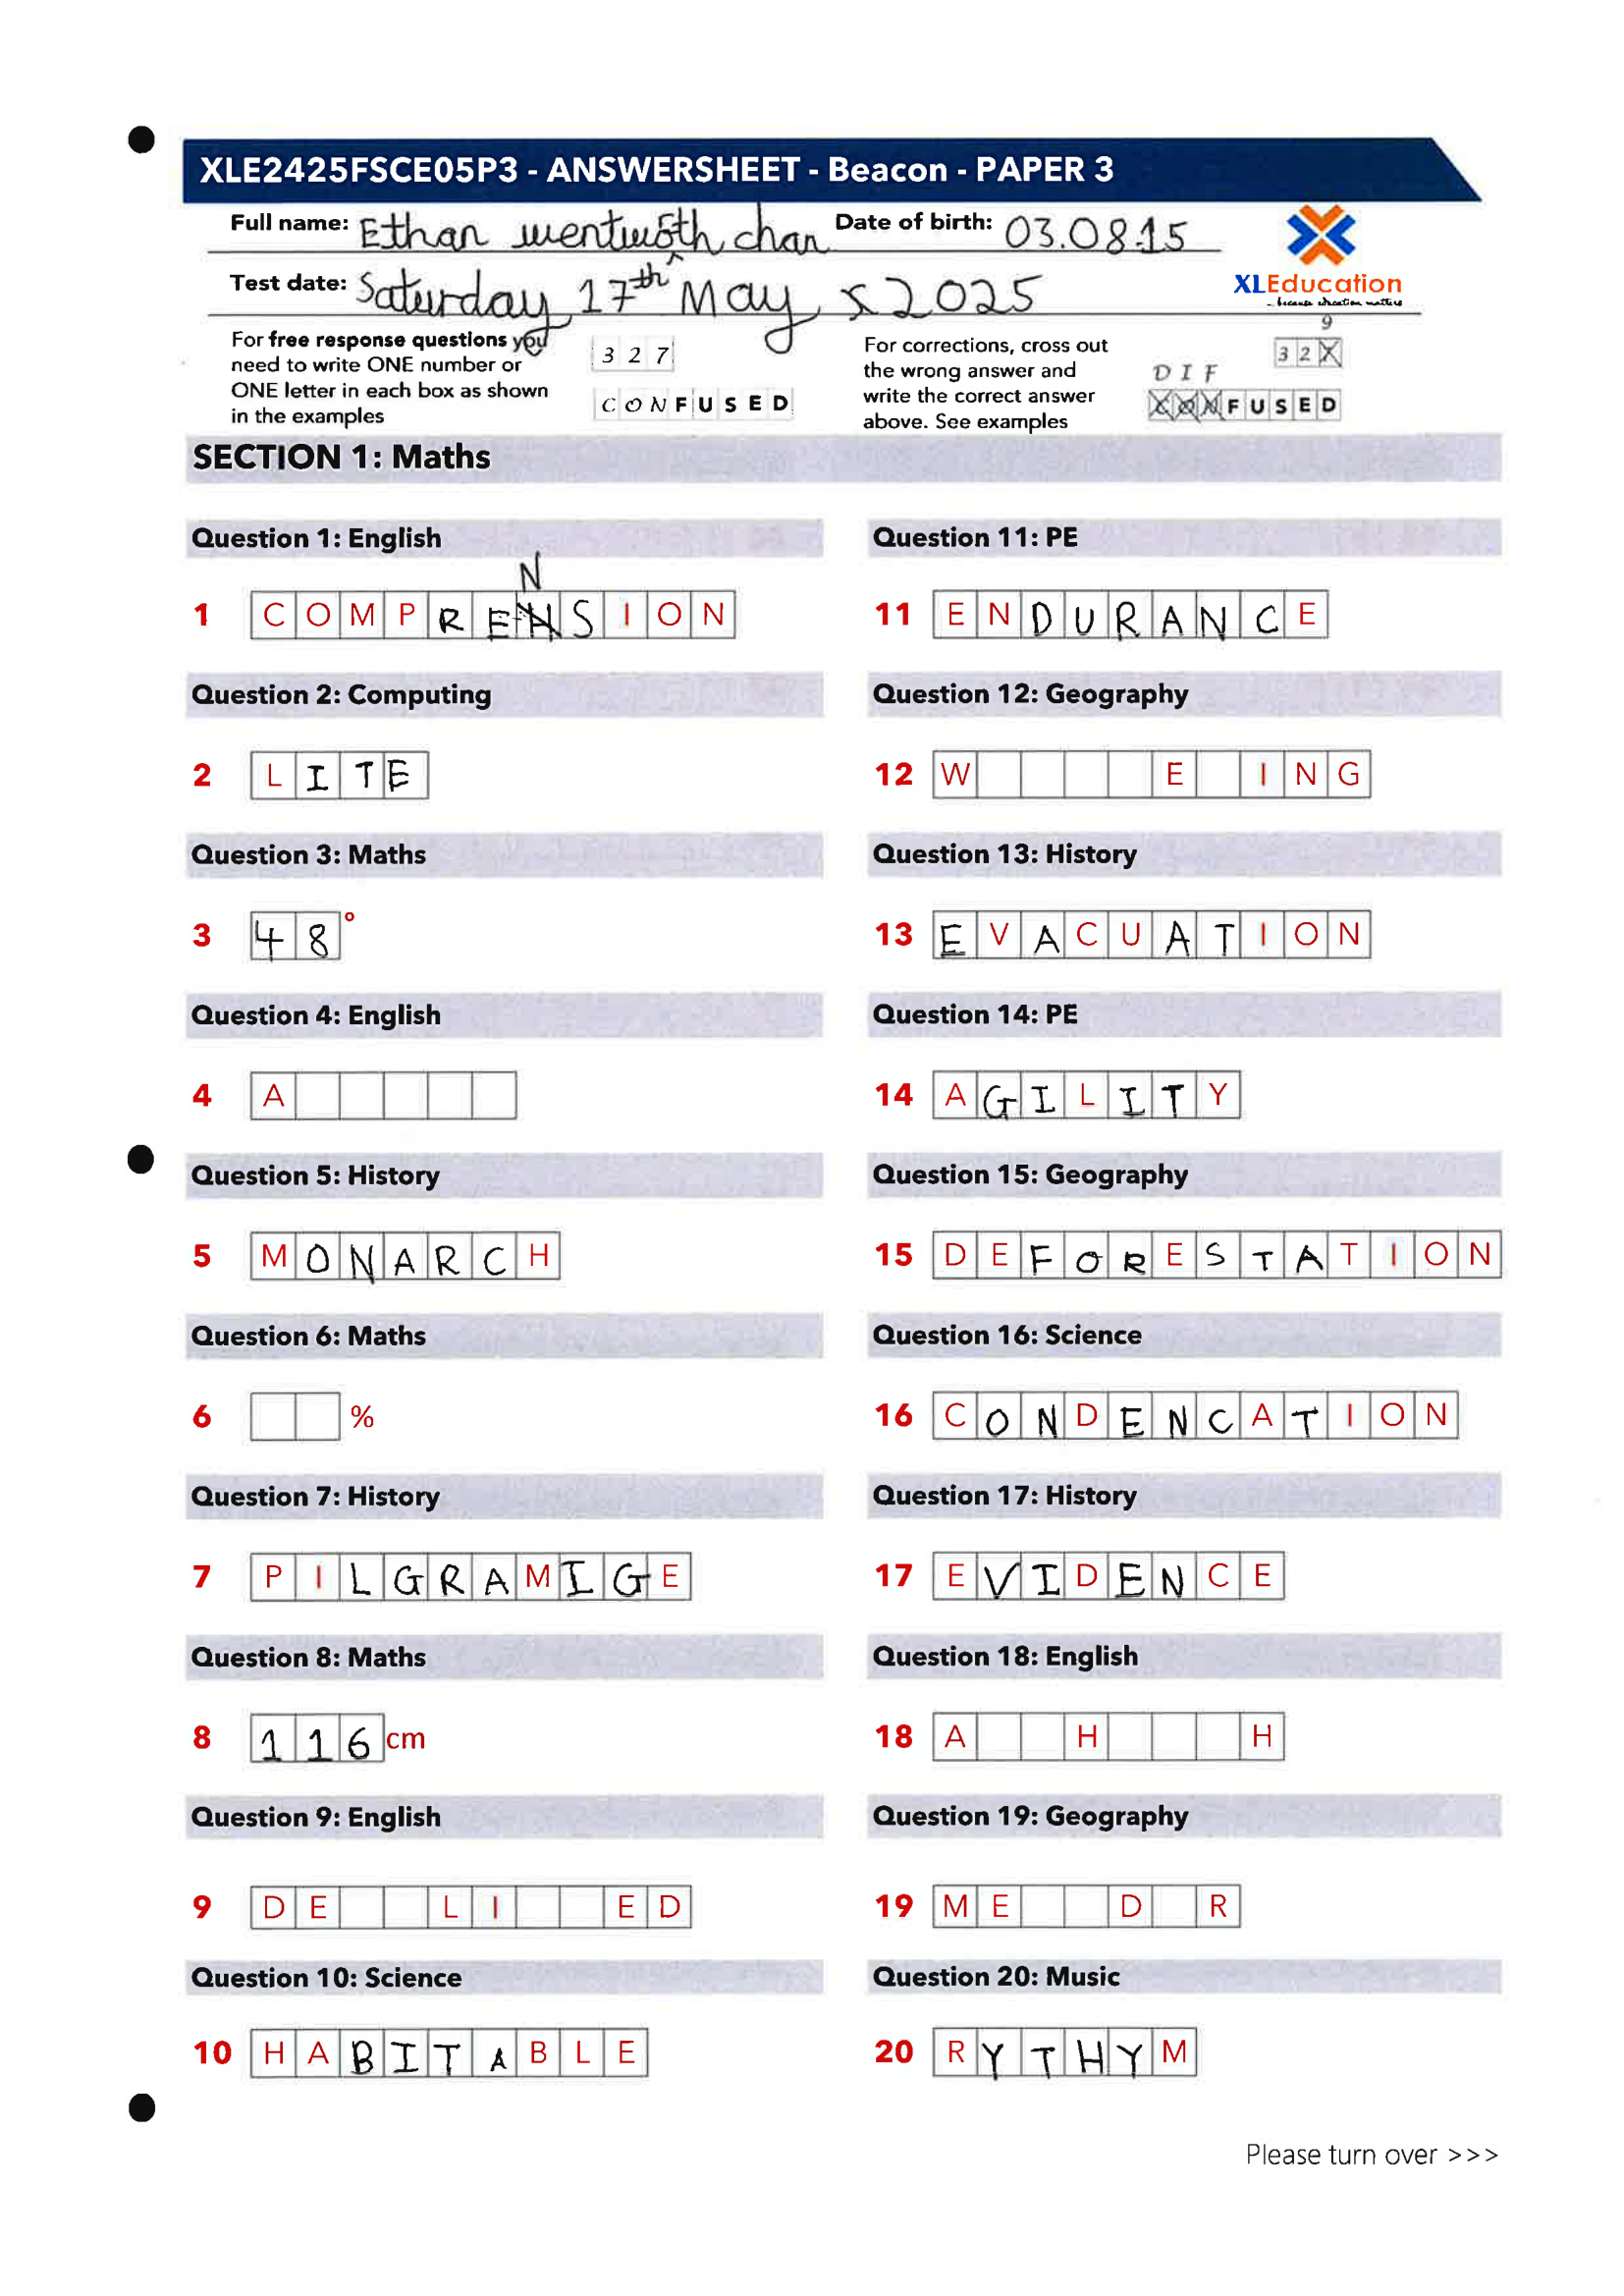 XLE2425FSCE05P3 - ANSWERSHEET - Beacon - PAPER 3
Full name: Ethan wentwoth chan Date of birth: 03.08.15
Test date: Saturday 17th May 2025
XLEducation
because education matters
For free response questions you
need to write ONE number or
ONE letter in each box as shown
in the examples
3 2 7
C O N F U S E D
For corrections, cross out
the wrong answer and
write the correct answer
above. See examples
9
3 2 X
D I F
F U S E D
SECTION 1: Maths
Question 1: English
N
1 C O M P R E N S I O N
Question 2: Computing
2 L I T E
Question 3: Maths
3 4 8 °
Question 4: English
4 A
Question 5: History
5 M O N A R C H
Question 6: Maths
6 %
Question 7: History
7 P I L G R A M I G E
Question 8: Maths
8 1 1 6 cm
Question 9: English
9 D E L I E D
Question 10: Science
10 H A B I T A B L E
Question 11: PE
11 E N D U R A N C E
Question 12: Geography
12 W E I N G
Question 13: History
13 E V A C U A T I O N
Question 14: PE
14 A G I L I T Y
Question 15: Geography
15 D E F O R E S T A T I O N
Question 16: Science
16 C O N D E N C A T I O N
Question 17: History
17 E V I D E N C E
Question 18: English
18 A H H
Question 19: Geography
19 M E D R
Question 20: Music
20 R Y T H Y M
Please turn over >>>